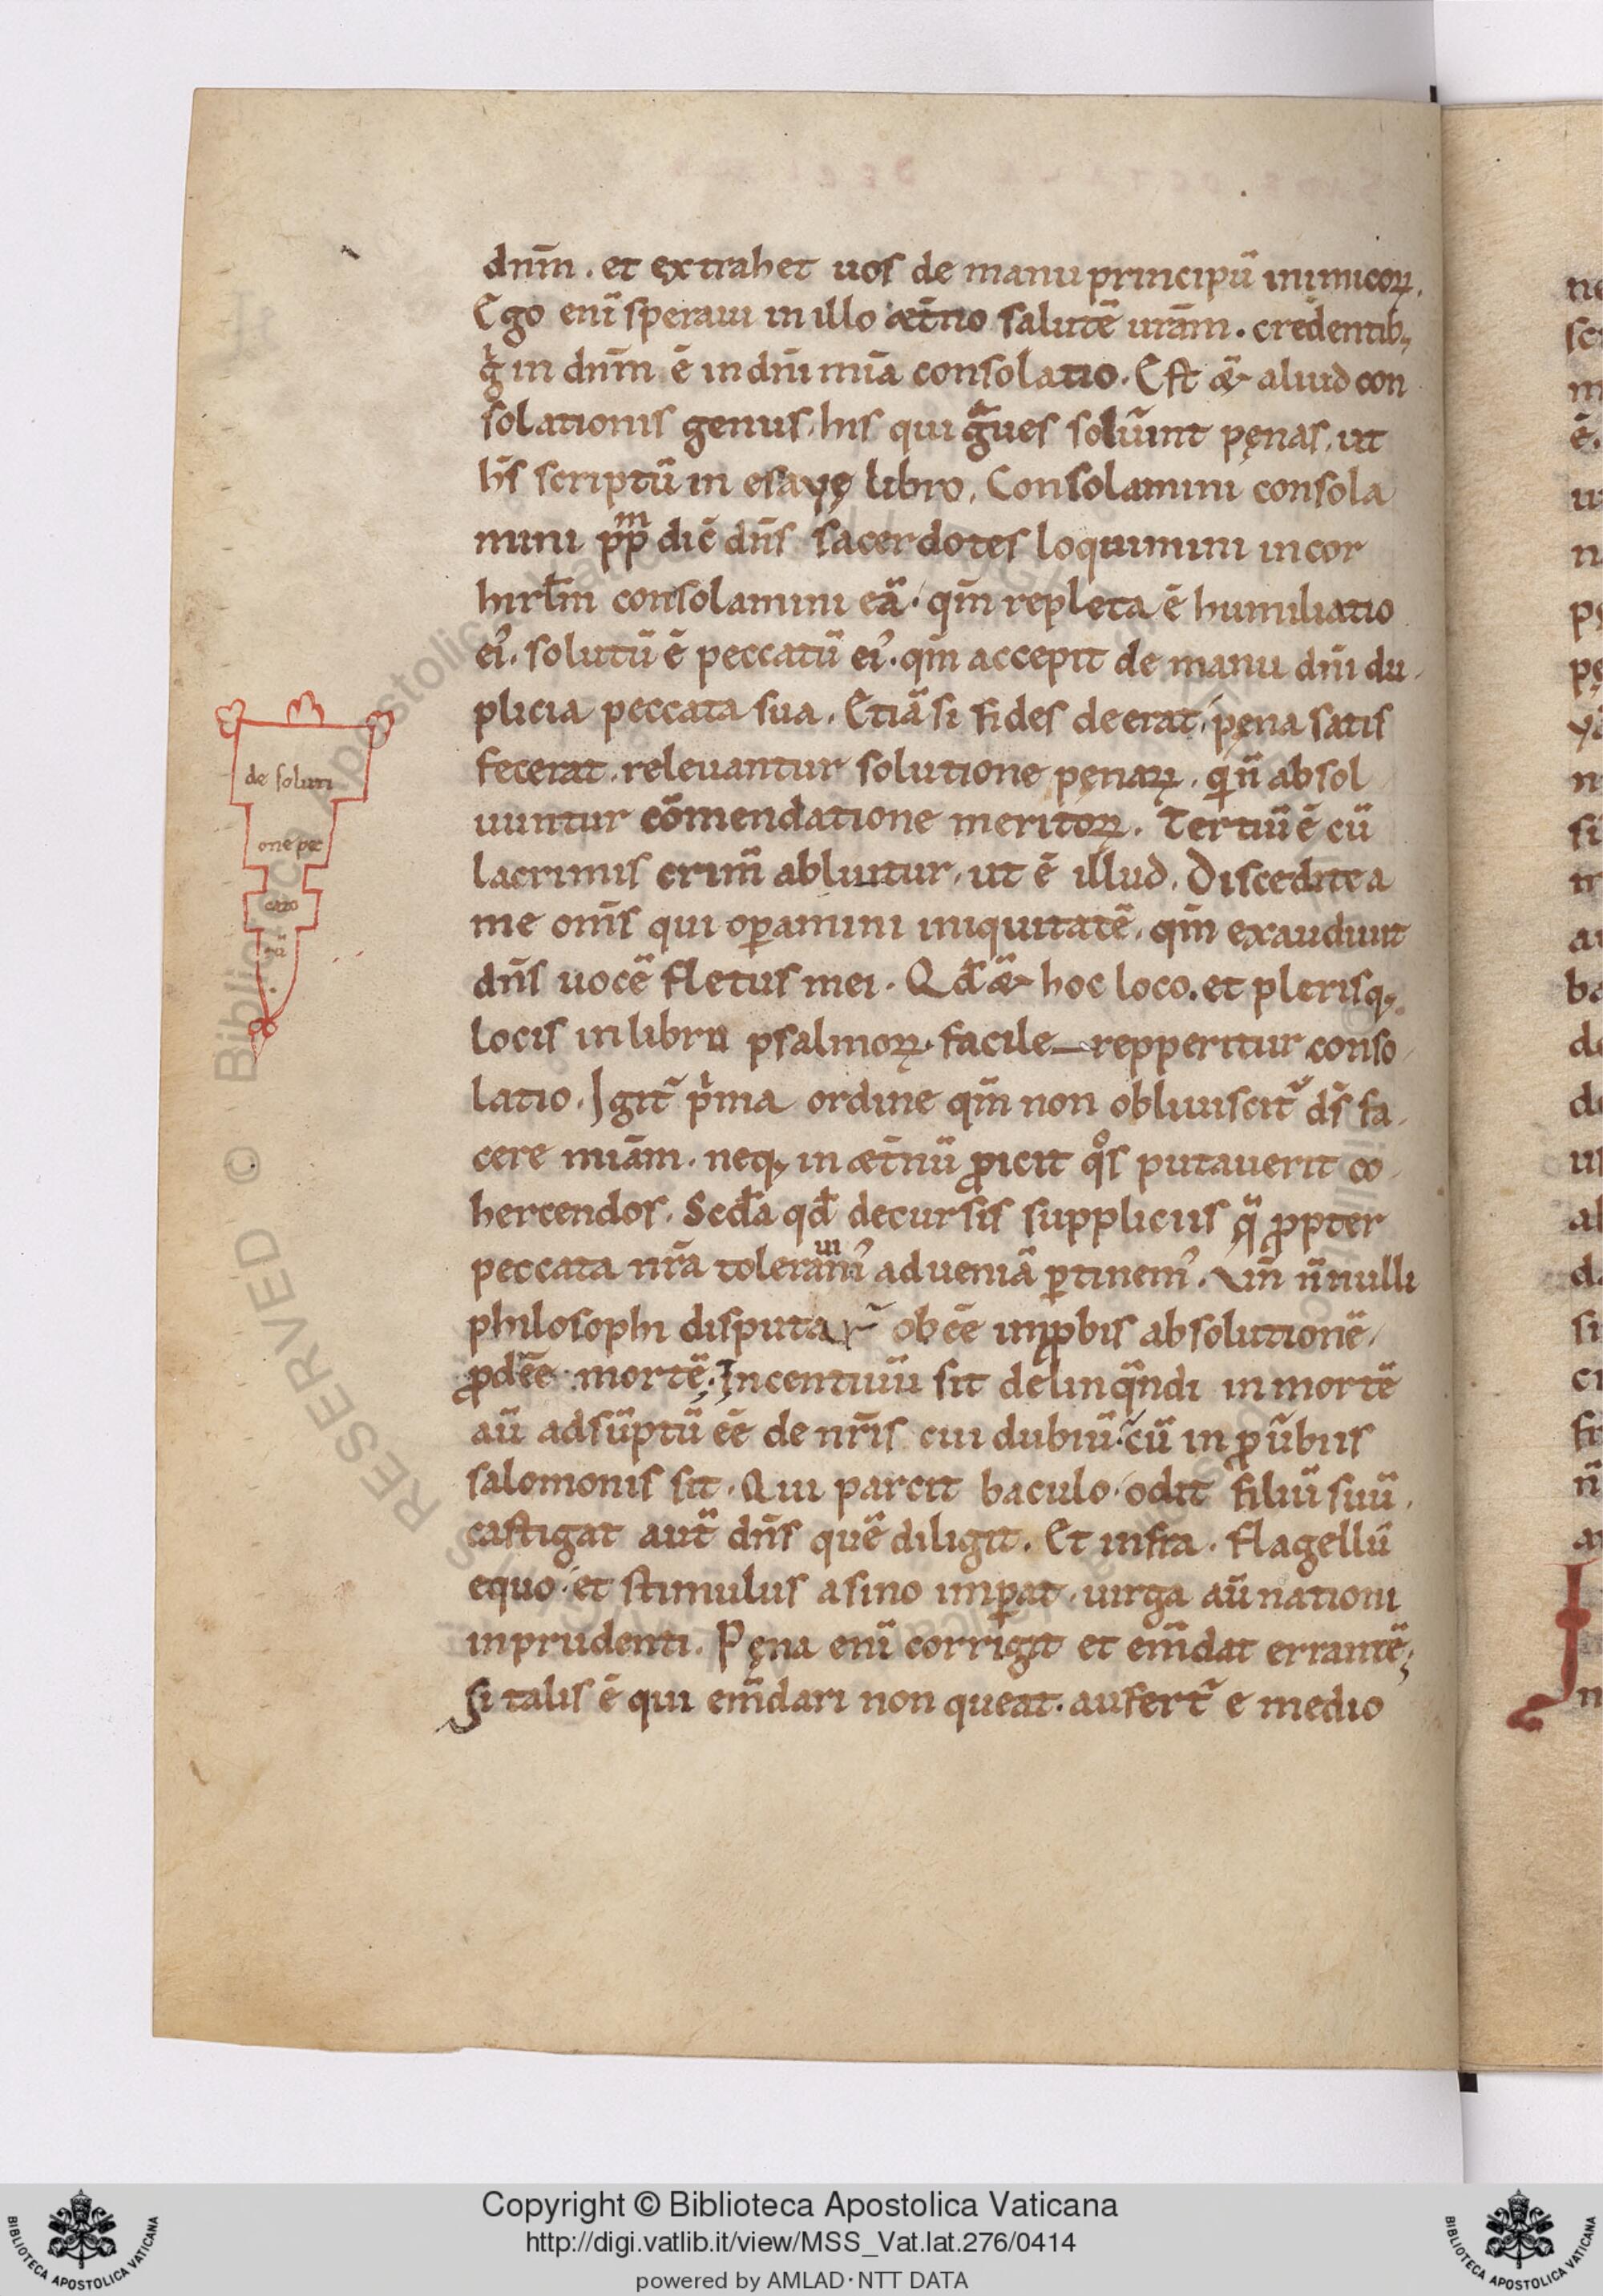 dnm̄. et extrahet uos de manu principū inimicoꝝ.
Ego enī speraui in illo æt̄no salutē urām. credentib;
g̊ in dnm̄ ē in dnī mīa consolatio. Est & aliud con
solationis genus. his qui gᷓues soluūnt pęnas. ut
hs̄ scriptū in esayę libro. Consolamini consola
mini ppm̄ dic̄ dns̄ sacerdotes loquimini in cor
hirłm consolamini eā. qm̄ repleta ē humiliatio
ei᾿. solutū ē peccatū ei᾿. qm̄ accepit de manu dnī du
plicia peccata sua. Etiā si fides deerat. pęna satis
fecerat. releuantur solutione pęnaꝝ. qi n̄ absol
uuntur cōmendatione meritoꝝ. Tertiū ē cū
lacrimis crim̄ abluitur. ut ē illud. Discedite a
me om̄s qui oꝑamini iniquitatē. qm̄ exaudiuit
dns̄ uocē fletus mei. Qđ & hoc loco. et plerisq;
locis in libru psalmoꝝ. facile repperitur conso
latio. Igit̄ pima ordine qm̄ non obliuiscit̄ ds̄ fa
cere miām. neq; in æt̄nū ꝓicit qos putauerit co
hercendos. Scđa qđ decursis suppliciis q̄ ꝓpter
peccata nrā toleram᾿ ad ueniā ꝑtinem᾿. Vn̄ n̄nulli
philosophi disputar̄ ob eē impꝓbis absolutionē
ꝓdeē mortē. Incentiuū sit delinq̄ndi in mortē
aū adsūptū eē de nrīs cui dubiū. cū in ꝓuūbiis
salomonis sit. Qui parcit baculo. odit filiū suū.
castigat aut̄ dns̄ quē diligit. Et infra. Flagellū
equo. et stimulus asino imꝑat. uirga aū nationi
inprudenti. Pęna enī corrigit et em̄dat errantē;
Si talis ē qui em̄dari non queat. aufert̄ e medio
de soluti
one pec
cato
rū
Copyright © Biblioteca Apostolica Vaticana
http://digi.vatlib.it/view/MSS_Vat.lat.276/0414
powered by AMLAD·NTT DATA
BIBLIOTECA APOSTOLICA VATICANA
BIBLIOTECA APOSTOLICA VATICANA